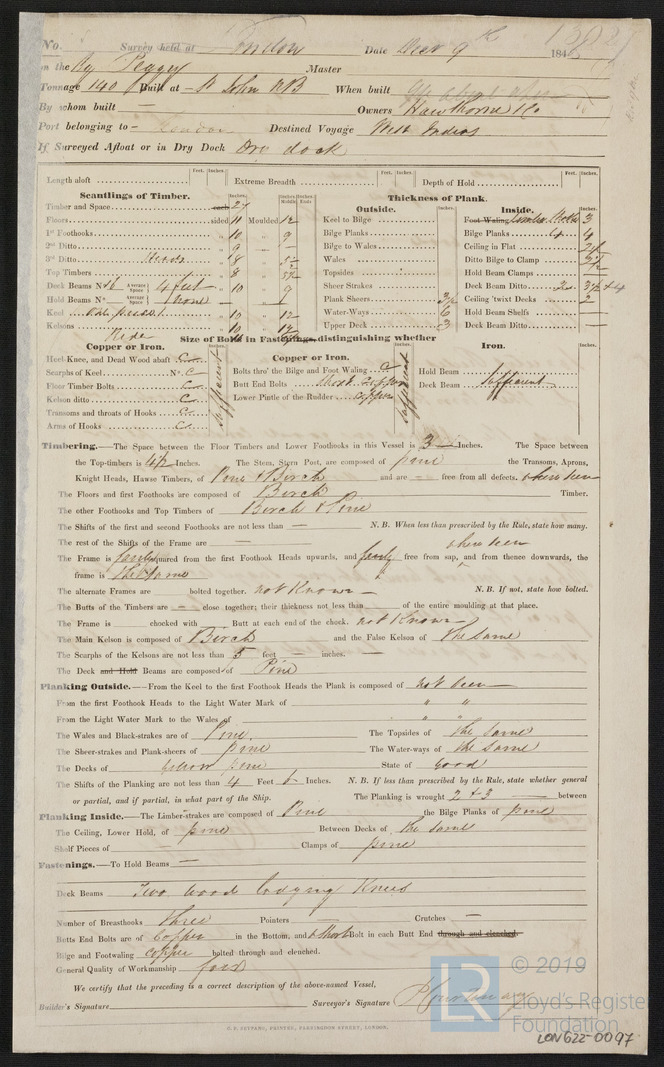 No. Survey held at London Date Decr 9th 184
on the Bg Peggy Master
Tonnage 140 Built at St John NB When built
By whom built — Owners Hawthorne & Co
Port belonging to - London Destined Voyage West Indies
If Surveyed Afloat or in Dry Dock Dry dock
Feet. Inches. Feet. Inches. Feet. Inches.
Length aloft Extreme Breadth Depth of Hold
Scantlings of Timber. Thickness of Plank.
Outside. Inside.
Timber and Space each 27 Keel to Bilge Foot Waling Limber Strake 3
Floors sided 11 Moulded 12 Bilge Planks Bilge Planks 4
1st Foothooks " 10 " 9 Bilge to Wales Ceiling in Flat
2nd Ditto " 9 " — Wales Ditto Bilge to Clamp
3rd Ditto " 8 Topsides Hold Beam Clamps
Top Timbers " 8 Sheer Strakes Deck Beam Ditto
Deck Beams No. 16 Average Space 4 feet " 10 " 9 Plank Sheers 3½ Ceiling 'twixt Decks 2
Hold Beams No. — Average Space none Water-Ways 6 Hold Beam Shelfs —
Keel " 10 " 12 Upper Deck 3 Deck Beam Ditto —
Kelsons " 10
Size of Bolts in Fastenings, distinguishing whether
Copper or Iron. Copper or Iron. Iron.
Heel-Knee, and Dead Wood abaft C Bolts thro' the Bilge and Foot Waling C Hold Beam —
Scarphs of Keel No. C Butt End Bolts Short Copper Deck Beam Sufficient
Floor Timber Bolts C Lower Pintle of the Rudder Copper
Kelson ditto C
Transoms and throats of Hooks C
Arms of Hooks C
Sufficient Sufficient
Timbering.—The Space between the Floor Timbers and Lower Foothooks in this Vessel is 3 Inches. The Space between
the Top-timbers is 4½ Inches. The Stem, Stern Post, are composed of pine the Transoms, Aprons,
Knight Heads, Hawse Timbers, of Pine & Birch and are — free from all defects. when seen
The Floors and first Foothooks are composed of Birch Timber.
The other Foothooks and Top Timbers of Birch & Pine
The Shifts of the first and second Foothooks are not less than — N.B. When less than prescribed by the Rule, state how many.
The rest of the Shifts of the Frame are —
when seen
The Frame is fairly squared from the first Foothook Heads upwards, and fairly free from sap, and from thence downwards, the
frame is the same
The alternate Frames are bolted together. not known — N.B. If not, state how bolted.
The Butts of the Timbers are — close together; their thickness not less than of the entire moulding at that place.
The Frame is chocked with — Butt at each end of the chock. not known —
The Main Kelson is composed of Birch and the False Kelson of the same
The Scarphs of the Kelsons are not less than 5 feet — inches. —
The Deck and Hold Beams are composed of Pine
Planking Outside.—From the Keel to the first Foothook Heads the Plank is composed of not seen
From the first Foothook Heads to the Light Water Mark of " "
From the Light Water Mark to the Wales of " "
The Wales and Black-strakes are of Pine The Topsides of the same
The Sheer-strakes and Plank-sheers of pine The Water-ways of the same
The Decks of yellow pine State of Good
The Shifts of the Planking are not less than 4 Feet 6 Inches. N.B. If less than prescribed by the Rule, state whether general
or partial, and if partial, in what part of the Ship. The Planking is wrought 2 & 3 between
Planking Inside.—The Limber-strakes are composed of Pine the Bilge Planks of pine
The Ceiling, Lower Hold, of pine Between Decks of the same
Shelf Pieces of — Clamps of pine
Fastenings.—To Hold Beams —
Deck Beams Two wood lodging Knees
Number of Breasthooks three Pointers — Crutches —
Butts End Bolts are of Copper in the Bottom, and a Short Bolt in each Butt End through and clenched.
Bilge and Footwaling copper bolted through and clenched.
General Quality of Workmanship Good
We certify that the preceding is a correct description of the above-named Vessel,
Builder's Signature Surveyor's Signature
LR © 2019
Lloyd's Register
Foundation
LON622-0097